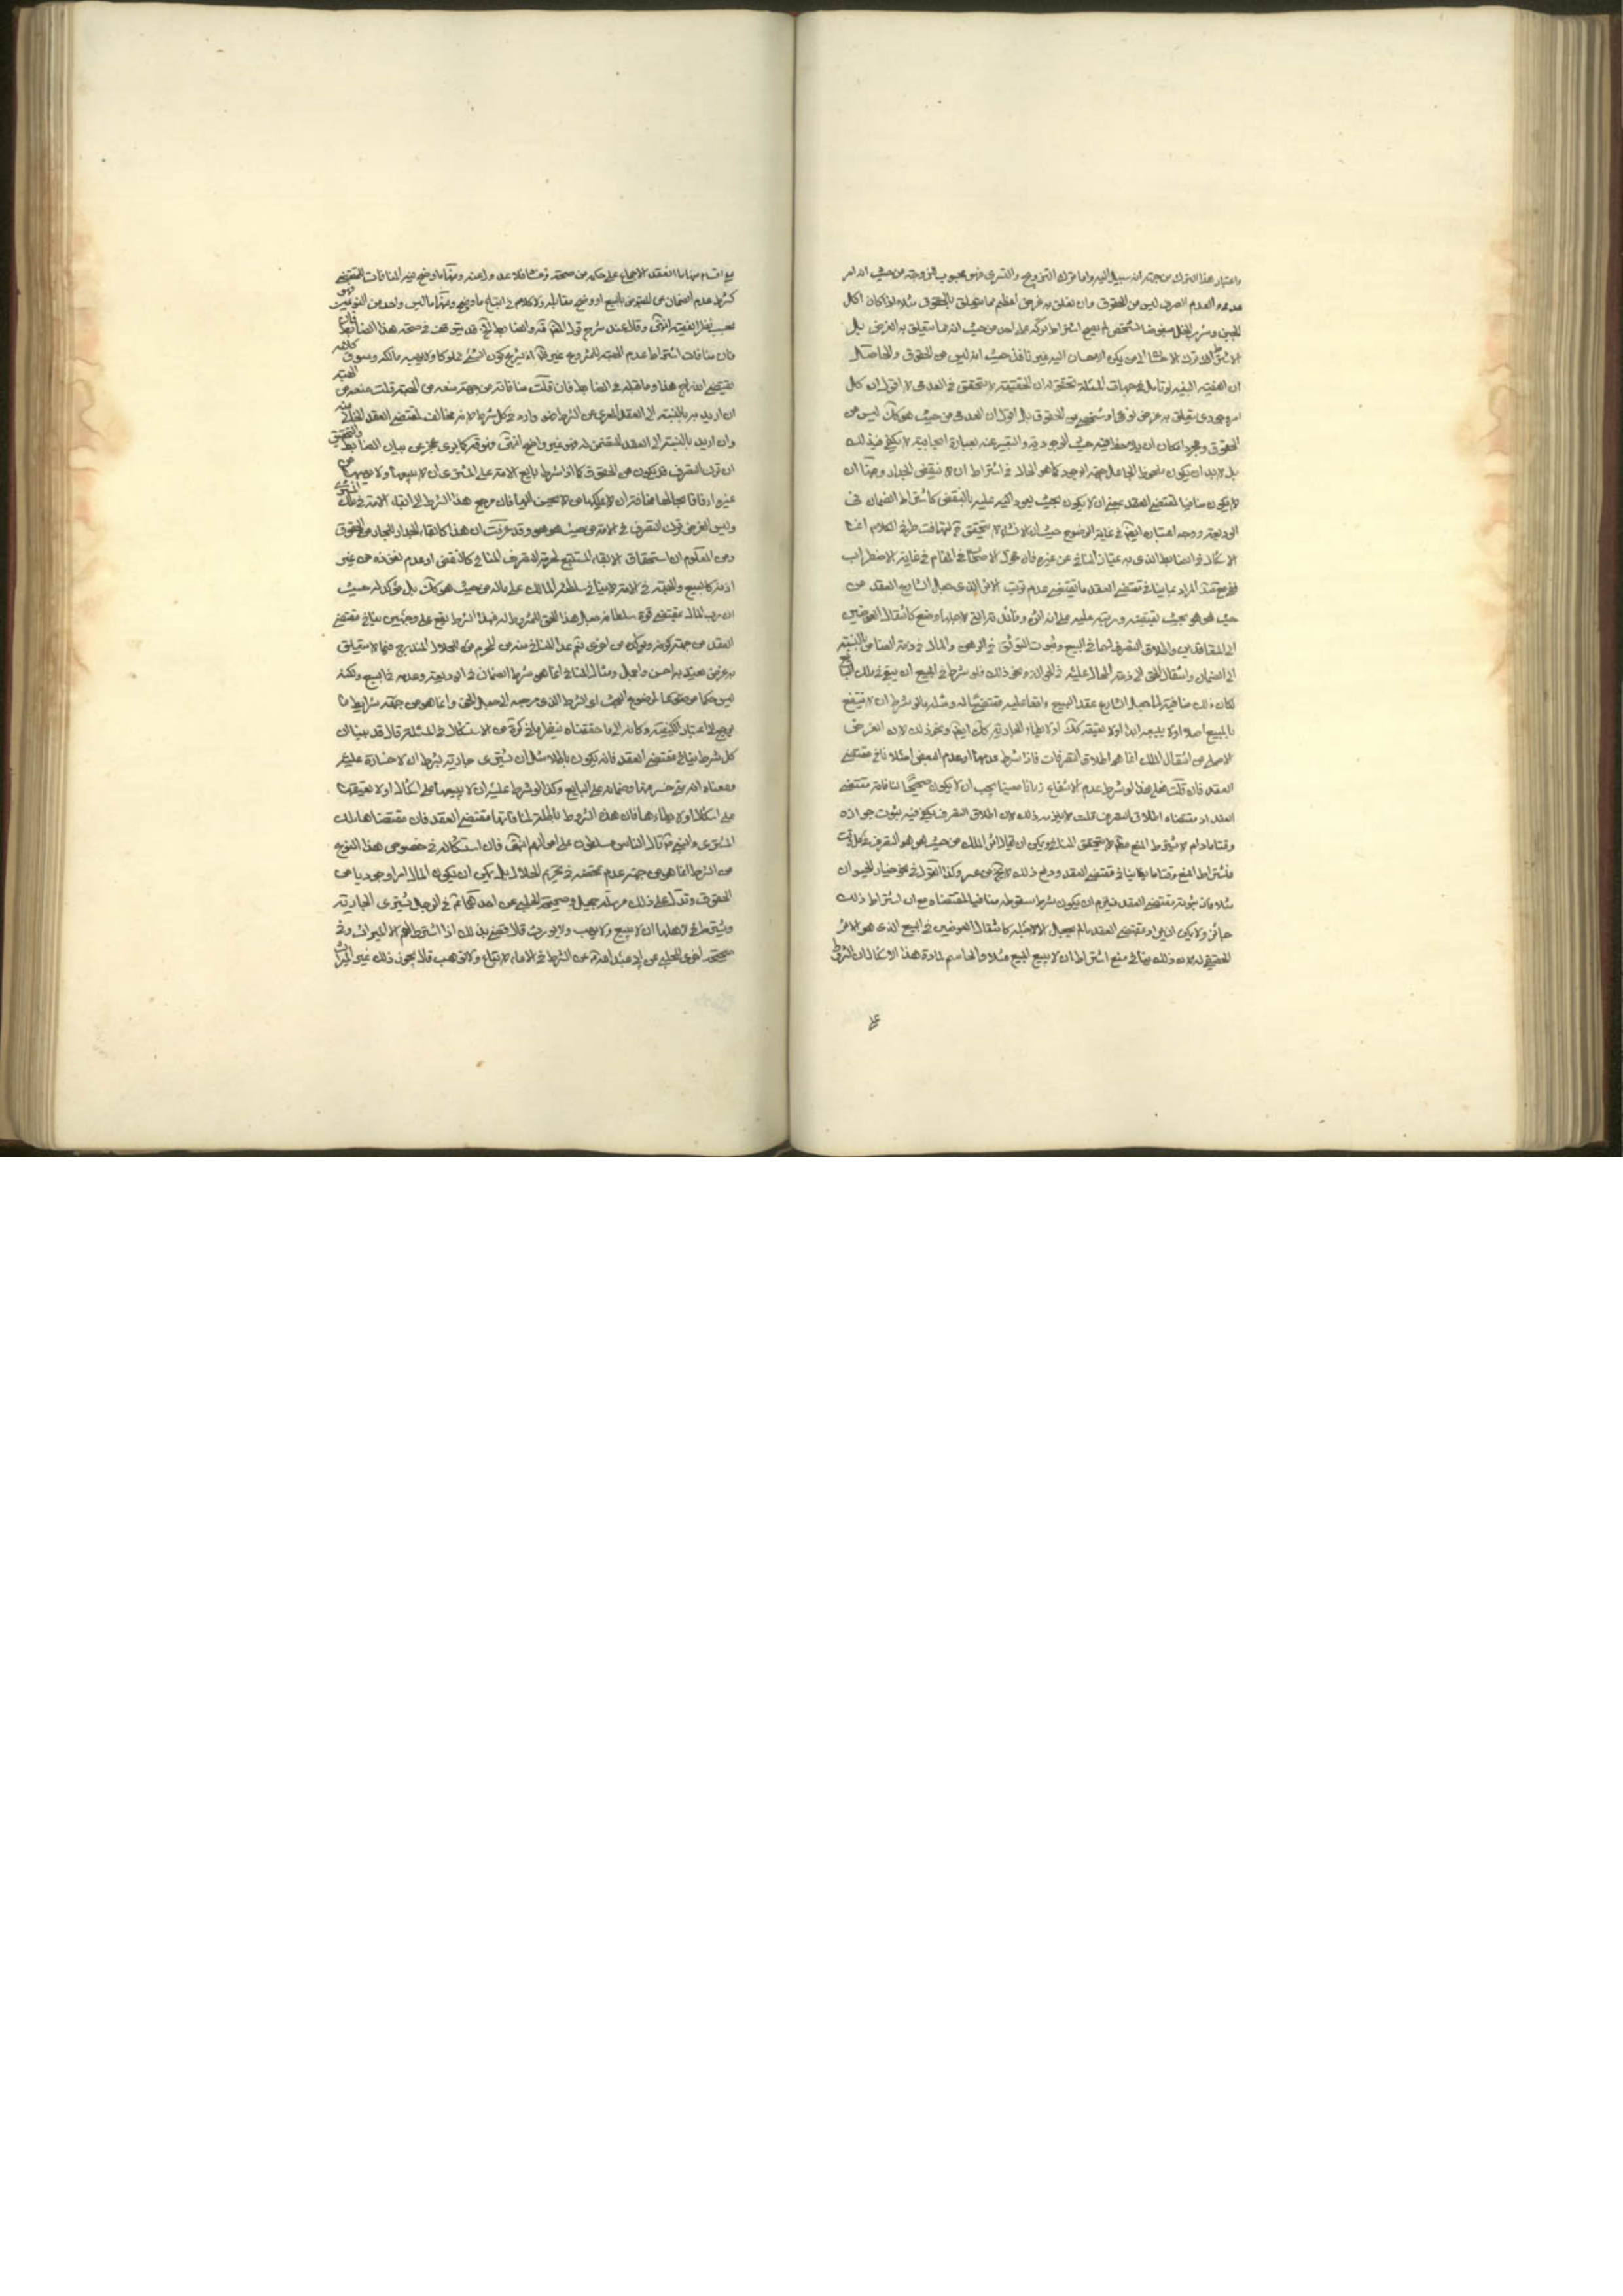 واعتبار هذا الترك من جهة انه سبيل اليه واما ترك التزويج والتسرى فهو محبوب للزوجة من حيث انه امر
عدمى والعدم الصرف ليس من الحقوق وان تعلق به غرض اعظم مما يتعلق بالحقوق مثلا لو كان اكل
الجبن وشرب الخل مبغوضا لشخص لم يصح اشتراط تركه على احد من حيث انه مما يتعلق به الغرض بل
ان الفقيه النبيه لو تامل فى جهات المسئلة تحقق له ان الحقيقة لا تتحقق فى العدمى لا اقول ان كل
امر وجودى يتعلق به غرض نوعى او شخصى من الحقوق بل اقول ان العدمى من حيث هو كك ليس من
الحقوق ومجرد امكان ان يلاحظ فيه حيث الوجودية والتعبير عنه بعبارة ايجابية لا يكفى فيه ذلك
بل لا بد ان يكون ملحوظ الجاعل جهة الوجود كما هو الحال فى اشتراط ان لا ينقض الجدار ومنها ان
لا يكون منافيا لمقتضى العقد بمعنى ان لا يكون بحيث يعود اليه عليه بالنقض كاشتراط الضمان فى
الوديعة ووجه اعتباره ايضا فى غاية الوضوح حيث ان الانشاء لا يتحقق مع تهافت طرفى الكلام انما
الاشكال فى الضابط الذى به يمتاز المنافى عن غيره فان كلام الاصحاب فى المقام فى غاية الاضطراب
المراد بما ينافى مقتضى العقد ما يقتضى عدم ترتب الاثر الذى جعل الشارع العقد من
حيث هو هو بحيث يقتضيه ورتبه عليه على انه اثره وفائدته التى لاجلها وضع كانتقال العوضين
الى المتعاقدين واطلاق التصرف لهما فى البيع وثبوت التوثق فى الرهن والمال فى ذمة الضامن بالنسبة
الى الضمان وانتقال الحق الى ذمة المحال عليه فى الحوالة ونحو ذلك فلو شرط فى البيع ان يبقى فى ملك البايع
لكان ذلك منافيا لما جعل الشارع عقد البيع واقعا عليه مقتضيا له ومثله ما لو شرط ان لا ينتفع
بالمبيع اصلا او لا يبيعه ابدا او لا يعتقه كك او لا يطأ الجارية كك ايضا ونحو ذلك لان الغرض
الاصلى من انتقال الملك انما هو اطلاق التصرفات فاذا شرط عدمها او عدم البعض اصلا نافى مقتضى
العقد فان قلت فعلى هذا لو شرط عدم الانتفاع زمانا معينا يجب ان لا يكون صحيحا لمنافاته مقتضى
العقد اذ مقتضاه اطلاق التصرف قلت لا يلزم من ذلك لان اطلاق التصرف يكفى فيه ثبوت جوازه
وقتا ما دام لا يشترط المنع لا يتحقق المنافى ويمكن ان يقال اثر الملك من حيث هو هو التصرف فى كل وقت
فاشتراط المنع وقتا ما ينافى مقتضى العقد ودفع ذلك لا يخ من عسر وكذا القول فى نحو خيار الحيوان
مثلا فان ثبوته مقتضى العقد فيلزم ان يكون شرط سقوطه منافيا لمقتضاه مع ان اشتراط ذلك
جائز ولا يمكن ان يراد بمقتضى العقد ما لم يجعل الا لاجله كانتقال العوضين فى البيع الذى هو الاثر
الحقيقى له لان ذلك ينافى منع اشتراط ان لا يبيع المبيع مثلا والحاسم لمادة هذا الاشكال ان الشروط
على
اقسام منها ما انعقد الاجماع على حكمه من صحة وفساد فلا عدول عنه ومنها ما وضح فيه المنافات للمقتضى
كشرط عدم الضمان عن المقبوض بالبيع او وضح مقابله ولا كلام فى اتباع ما وضح ومنها ما ليس واحد من النوعين فهو
بحسب نظر الفقيه انتهى وقال عند شرح قول المصنف والضابط الخ قد يتوقف فى صحة هذا الضابط فان
من منافات اشتراط عدم العتق للمشروع غير ظ اذ لا يرجع كون الشئ مملوكا ولا يبيعه مالكه وسوق كلامه
يقتضى اندراج هذا وما قبله فى الضابط فان قلت منافاته من جهة منعه من العتق قلت منعه من العتق
ان اريد به بالنسبة الى العقد المعرى عن الشرط فهو وارد فى كل شرط لانه مخالف لمقتضى العقد الخالى منه
وان اريد بالنسبة الى العقد المتضمن له فهو غير واضح انتهى وهو كما يرى عجز عن بيان الضابط والتحقيق
ان ترك التصرف قد يكون من الحقوق كما اذا شرط بايع الامة على المشترى ان لا يبيعها ولا يهبها من
غيره ارفاقا بحالها مخافة ان يملكها من لا يحسن اليها فان مرجع هذا الشرط الى ابقاء الامة فى ملك المشترى
وليس الغرض ترك التصرف فى الامة من حيث هو هو وقد عرفت ان هذا كابقاء الجدار للجار من الحقوق
ومن المعلوم ان استحقاق الابقاء المستتبع لحرمة التصرف المنافى كالنقض او عدم نفوذه من غير
اذنه كالبيع والهبة فى الامة لا ينافى سلطنة المالك على ماله من حيث هو كك بل مؤكد له حيث
ان رب المال بمقتضى قوة سلطانه جعل هذا الحق للمشروط له فهذا الشرط يقع على وجهين ينافى مقتضى
العقد من جهة كونه ومؤكد من اخرى ثم عد المنافى منه من المحرم من الحلال المندرج فيما لا يتعلق
به غرض معتد به احسن واجمل ومثال المنافى انما هو شرط الضمان فى الوديعة وعدمه فى البيع ولكنه
ليس حكما من احكام موضوع البحث اى الشرط الذى مرجعه الى جعل الحق وانما هو من جهة شرايط ما
يرجع الى اعتبار الكيفية وكانه الى ما حققناه ينظر ما فى كره من الاستشكال فى المسئلة قال قد بينا ان
كل شرط ينافى مقتضى العقد فانه يكون باطلا مثل ان يشترى جارية بشرط ان لا خسارة عليه
ومعناه انه متى خسر فيها فضمانه على البايع وكذا لو شرط عليه ان لا يبيعها على اشكال او لا يعتقها
على اشكال او لا يطأها فان هذه الشروط باطلة لمنافاتها مقتضى العقد فان مقتضاها ملك
المشترى والنبى ص قال الناس مسلطون على اموالهم انتهى فان استشكاله فى خصوص هذا النوع
من الشرط انما هو من جهة عدم تمحضه فى تحريم الحلال بل يمكن ان يكون المال امرا وجوديا من
الحقوق وتدل على ذلك مرسلة جميل وصحيحة الحلبى عن احدهما ع فى الرجل يشترى الجارية
ويشترط لاهلها ان لا يبيع ولا يهب ولا يورث قال يفى بذلك اذا اشترط لهم الا الميراث وفى
صحيحة اخرى للحلبى عن ابى عبد الله ع عن الشرط فى الاماء لا تباع ولا توهب قال يجوز ذلك غير الميراث